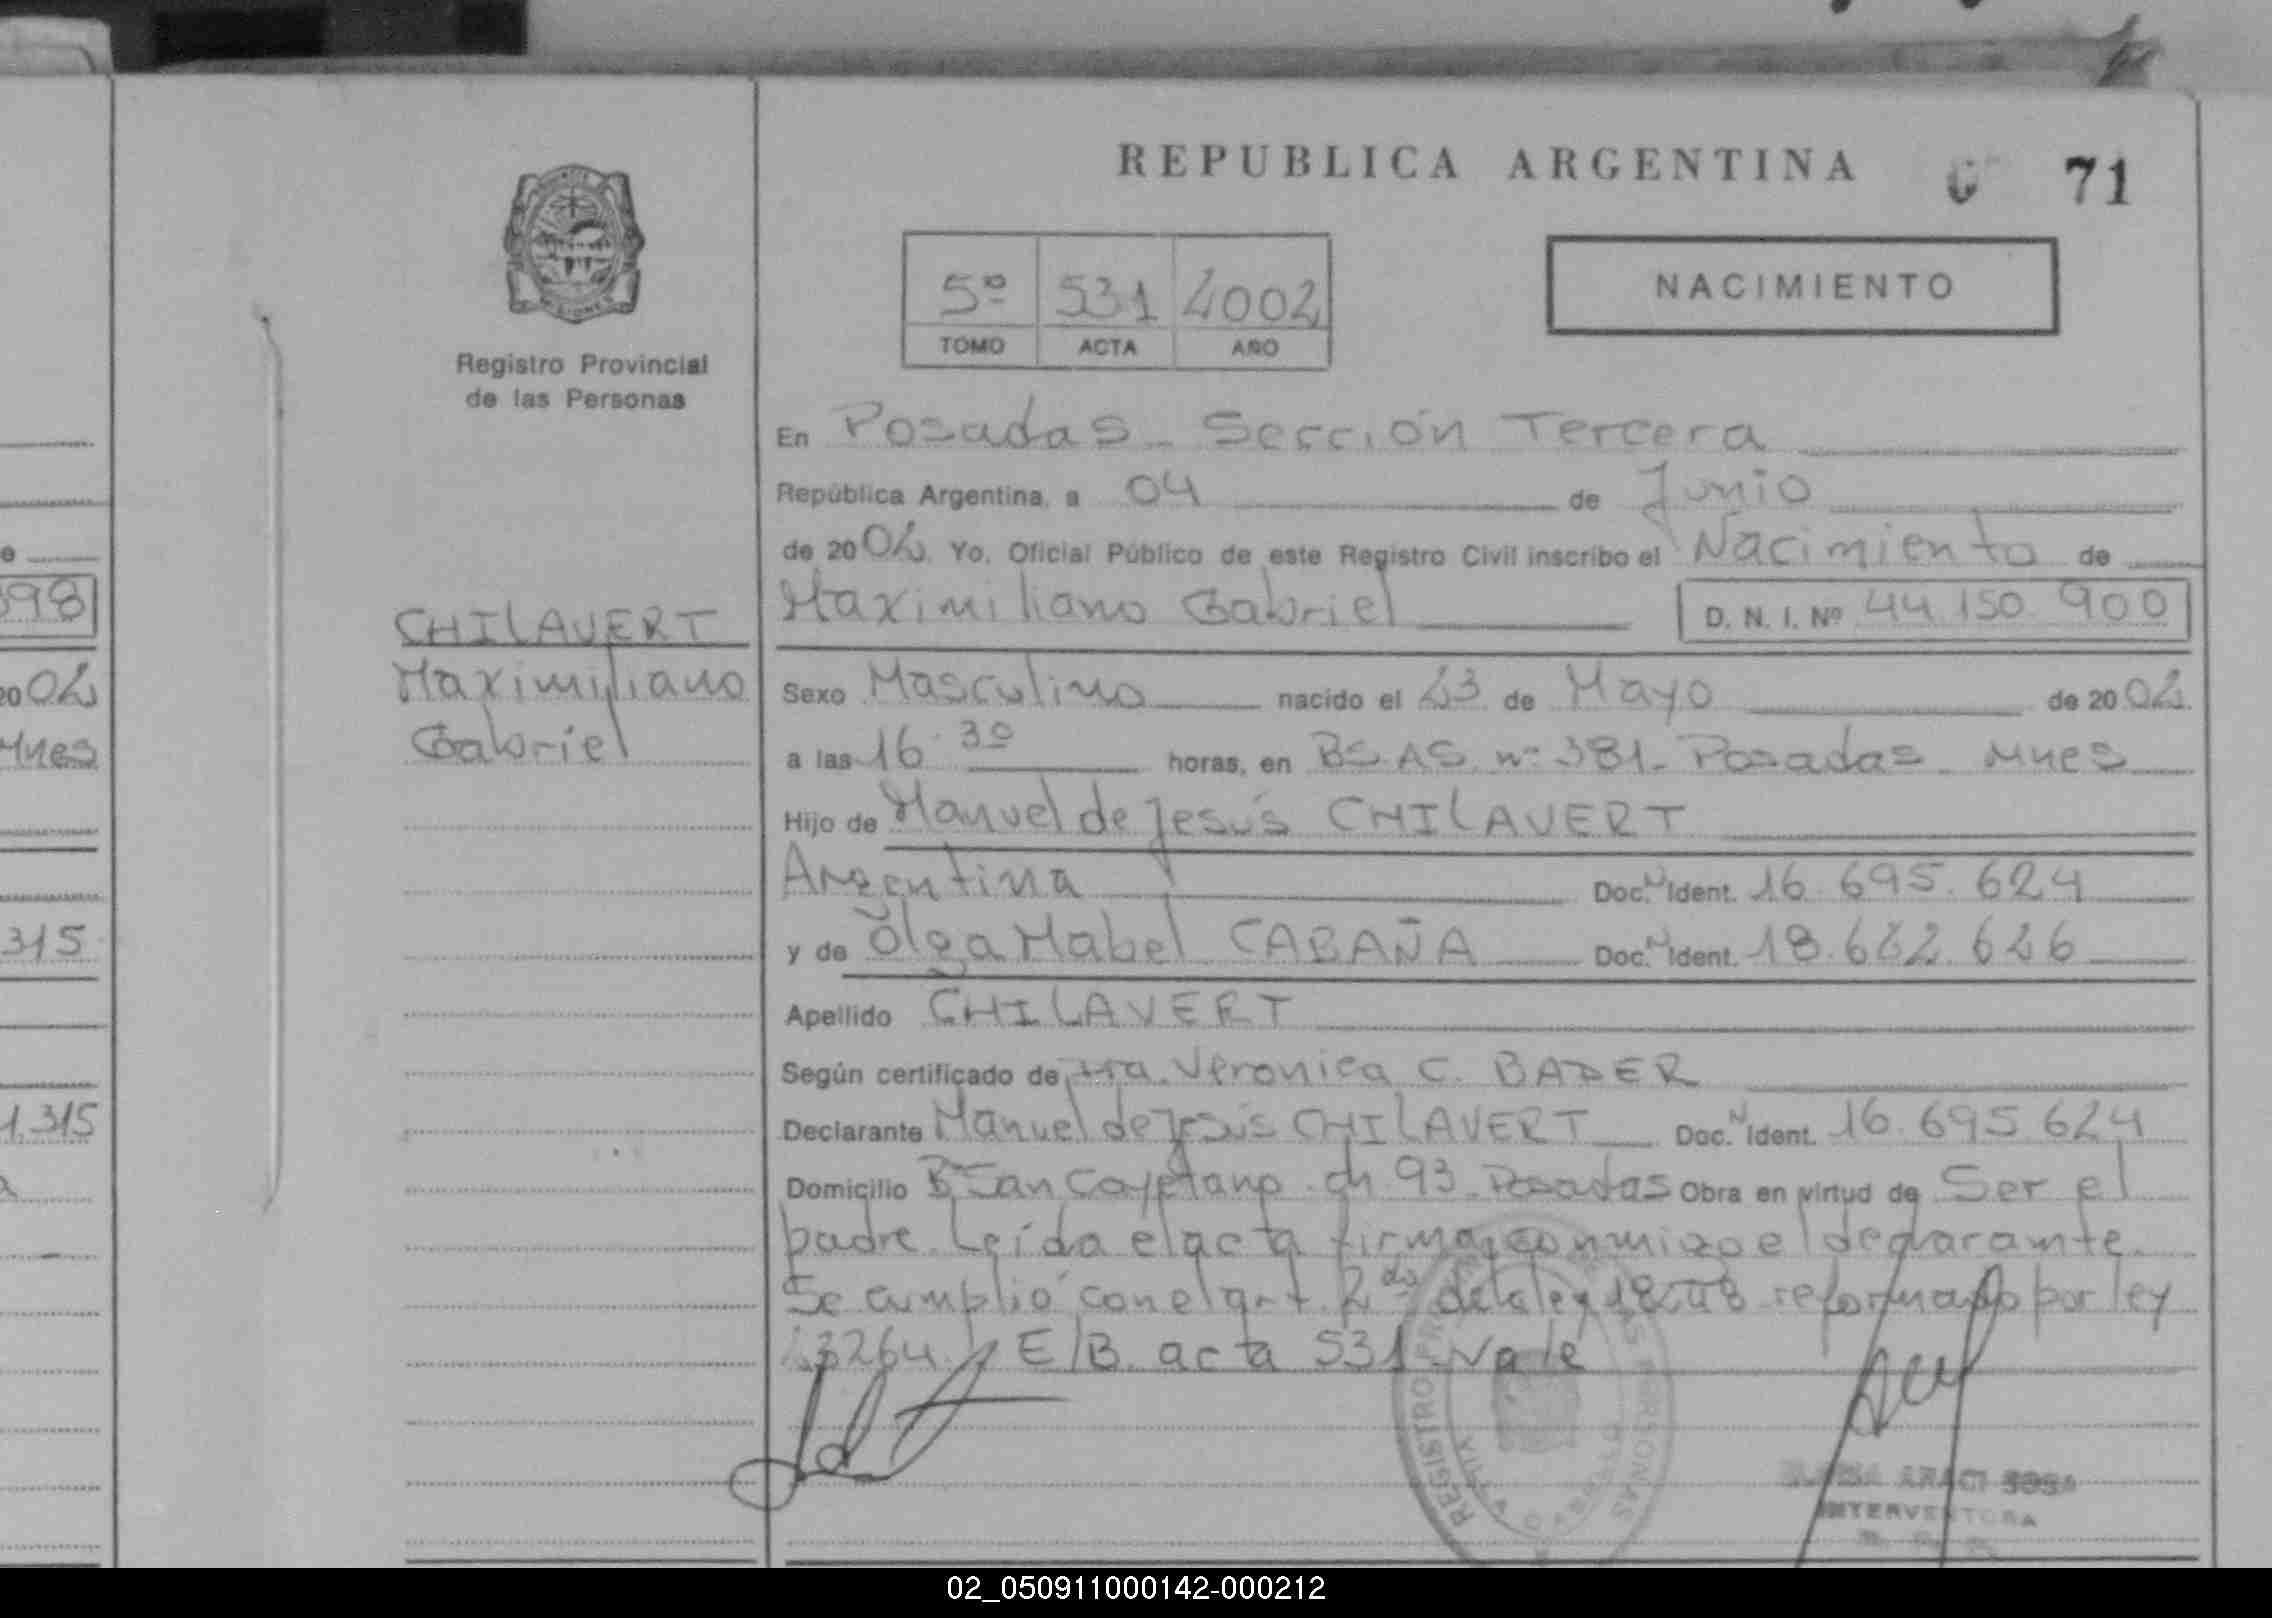 REPUBLICA ARGENTINA
71
5º 531 2002
TOMO ACTA AÑO
NACIMIENTO
Registro Provincial
de las Personas
En Posadas - Sección Tercera
República Argentina, a 04 de Junio
de 2002. Yo, Oficial Público de este Registro Civil inscribo el Nacimiento de
Maximiliano Gabriel D. N. I. Nº 44.150.900
CHILAVERT
Maximiliano
Gabriel
Sexo Masculino nacido el 23 de Mayo de 2002.
a las 16.30 horas, en BS.AS. nº 381- Posadas - Mnes
Hijo de Manuel de Jesús CHILAVERT
Argentina Doc. N Ident. 16.695.624
y de Olga Mabel CABAÑA Doc. N Ident. 18.622.626
Apellido CHILAVERT
Según certificado de Veronica C. BADER
Declarante Manuel de Jesús CHILAVERT Doc. N Ident. 16.695.624
Domicilio Bº San Cayetano. ch 93. Posadas Obra en virtud de Ser el
padre. Leída el acta firma conmigo el declarante.
Se cumplió con el art. 2do de la ley reformado por ley
23264. E/B. acta 531 - Vale
REGISTRO PERSONAS
ARACI SOSA
INTERVENTORA
98
2002
Mnes
315
1.315
02_050911000142-000212